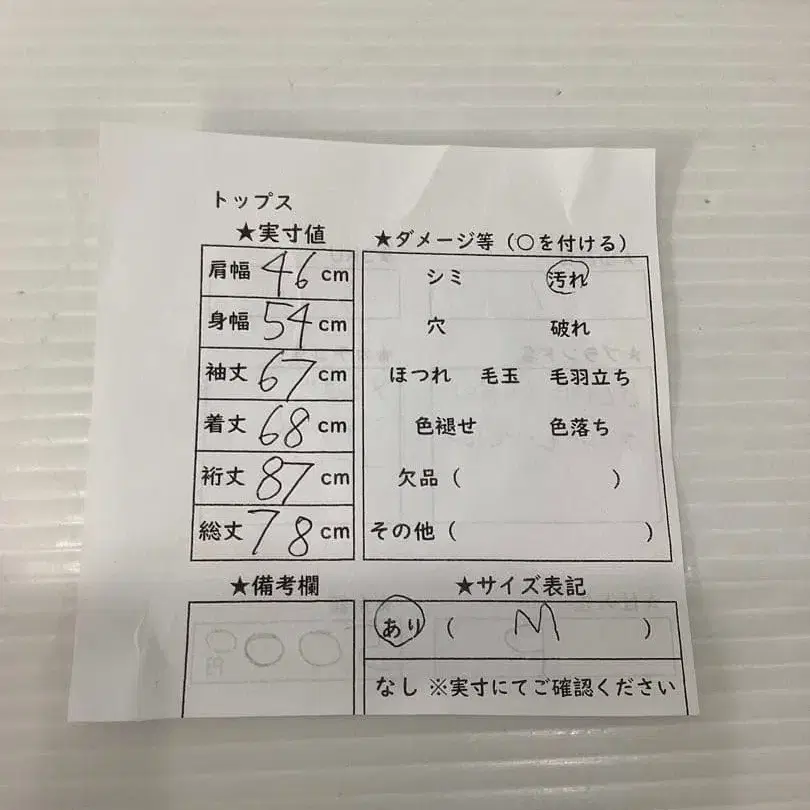 トップス
★実寸値
肩幅 46 cm
身幅 54 cm
袖丈 67 cm
着丈 68 cm
裄丈 87 cm
総丈 78 cm
★ダメージ等（〇を付ける）
シミ 汚れ
穴 破れ
ほつれ 毛玉 毛羽立ち
色褪せ 色落ち
欠品（ ）
その他（ ）
★備考欄
★サイズ表記
あり（ M ）
なし ※実寸にてご確認ください